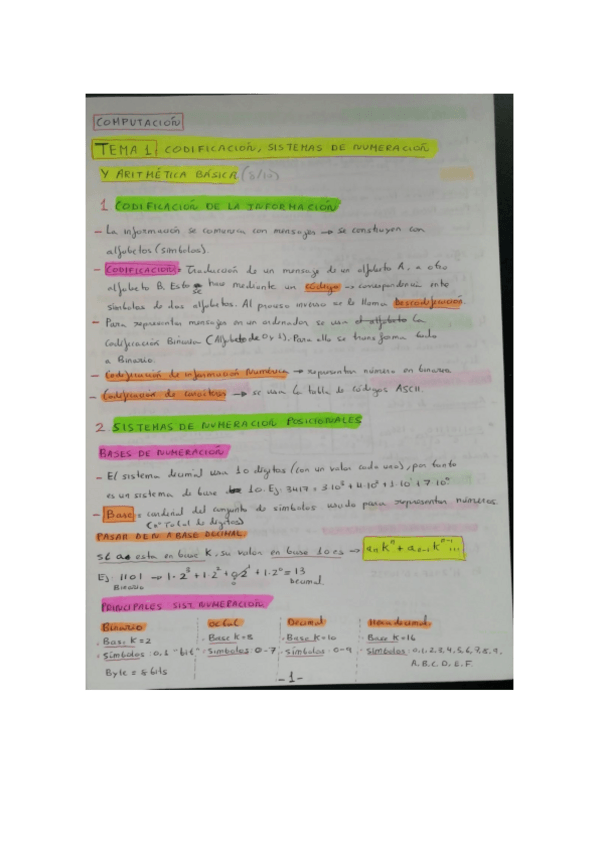 COMPUTACIÓN
TEMA 1 CODIFICACIÓN, SISTEMAS DE NUMERACIÓN
Y ARITMÉTICA BÁSICA
1 CODIFICACIÓN DE LA INFORMACIÓN
- La información se comunica con mensajes → se construyen con
alfabetos (símbolos).
- CODIFICACIÓN: Traducción de un mensaje de un alfabeto A, a otro
alfabeto B. Esto se hace mediante un código → correspondencia entre
símbolos de dos alfabetos. Al proceso inverso se le llama Descodificación.
- Para representar mensajes en un ordenador se usa el alfabeto la
codificación Binaria (Alfabeto de 0 y 1). Para ello se transforma todo
a Binario.
- Codificación de información Numérica → representar número en binario
- Codificación de caracteres → se usa la tabla de códigos ASCII.
2 SISTEMAS DE NUMERACION POSICIONALES
BASES DE NUMERACIÓN
- El sistema decimal usa 10 dígitos (con un valor cada uno), por tanto
es un sistema de base 10. Ej: 3417 =
- Base: cardinal del conjunto de símbolos usado para representar números.
(nº total de dígitos)
PASAR DE N A BASE DECIMAL
Si esta en base K, su valor en base 10 es → aₙKⁿ + aₙ₋₁Kⁿ⁻¹...
Ej: 1101 → 1·2³ + 1·2² + 0·2¹ + 1·2⁰ = 13
Binario Decimal
PRINCIPALES SIST. NUMERACIÓN
Binario octal Decimal Hexadecimal
· Base K=2 · Base K=8 · Base K=10 · Base K=16
· Símbolos: 0,1 "bit" · Símbolos: 0-7 · Símbolos: 0-9 · Símbolos: 0,1,2,3,4,5,6,7,8,9,
A,B,C,D,E,F.
Byte = 8 bits
-1-